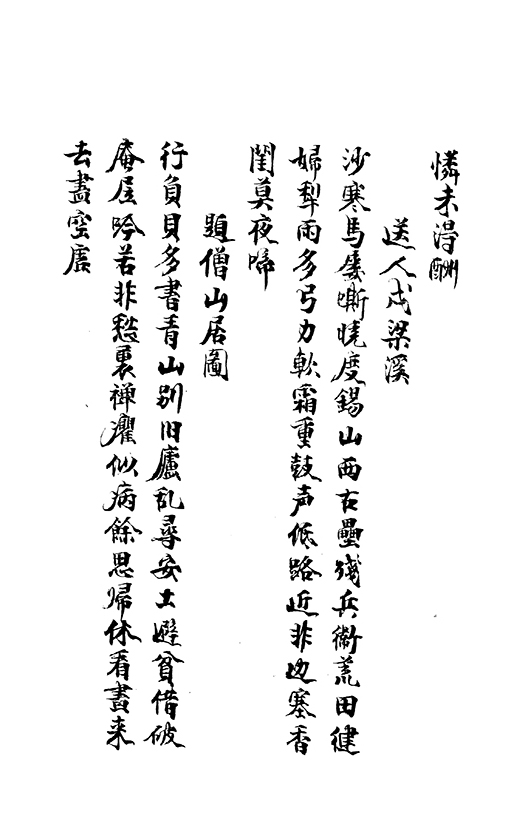 憐未得酬
送人戍梁溪
沙寒馬屡嘶曉度錫山西古壘殘兵衛荒田健
婦犁雨多弓力軟霜重鼓声低路近非边塞香
閨莫夜啼
題僧山居圖
行負貝多書青山別旧廬乱尋安土避貧借破
庵居吟若非愁裏禅癯似病餘思帰休看畫来
去盡空虚